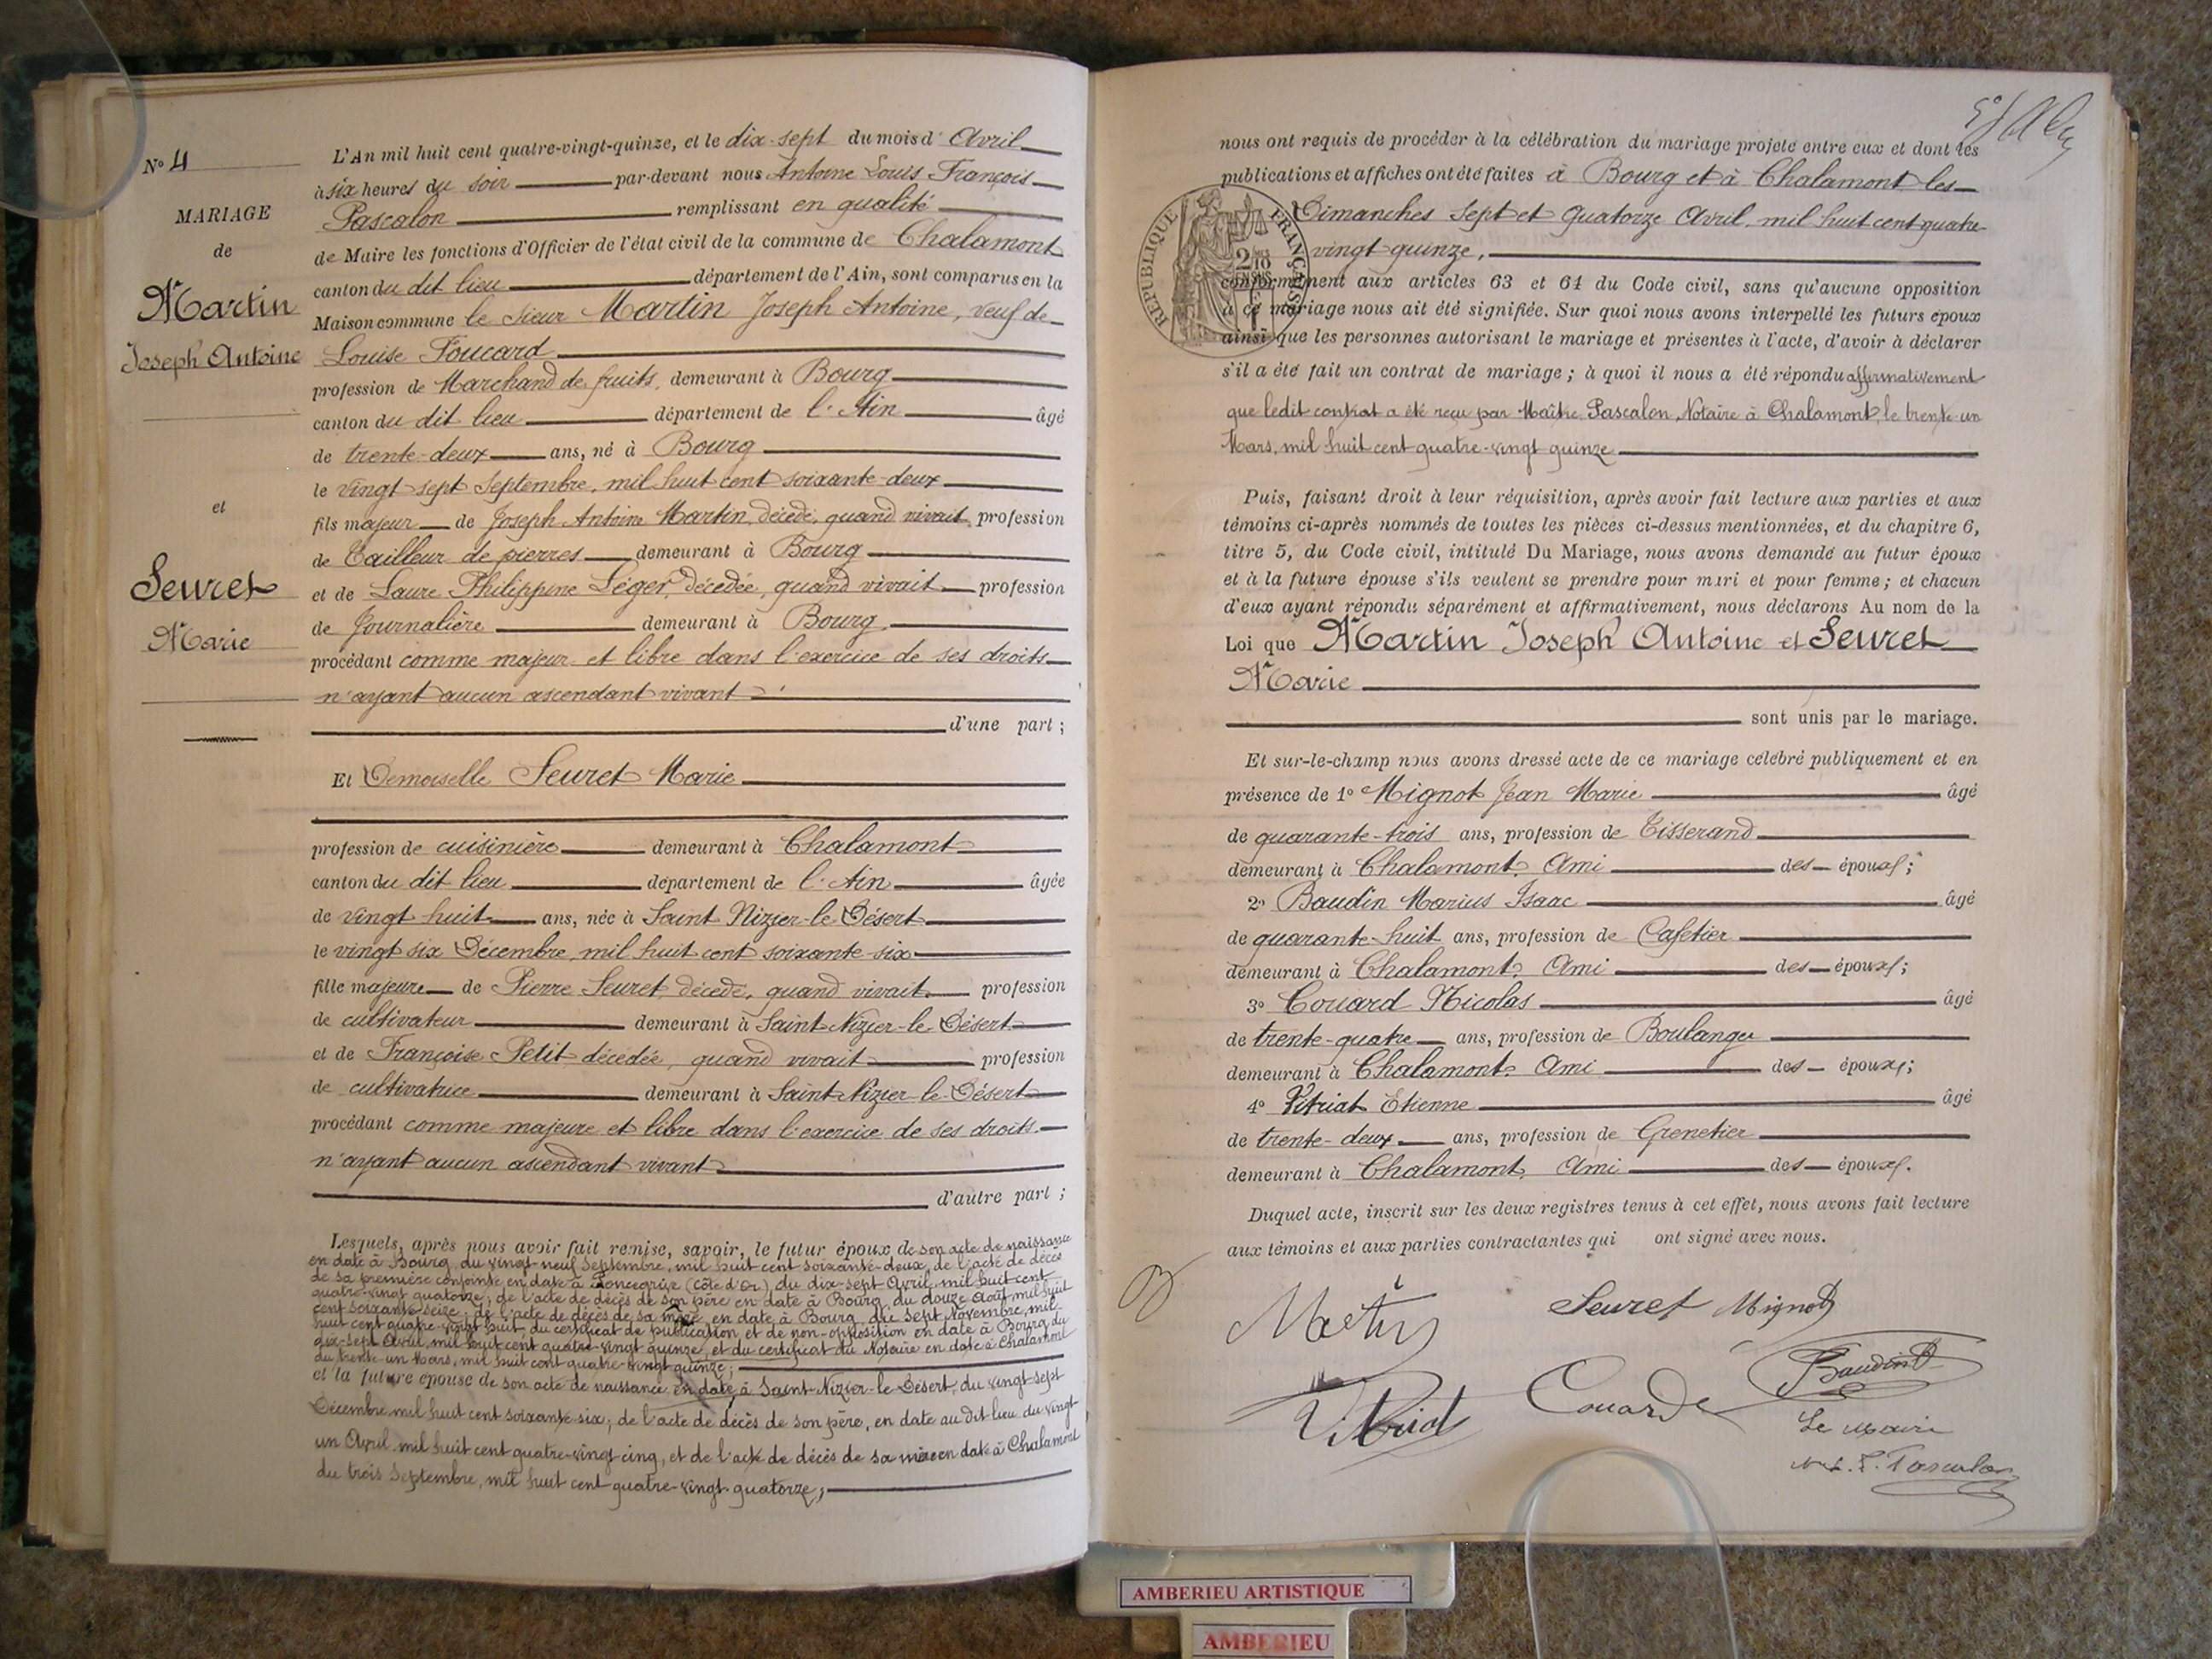 N° 4
MARIAGE
de
Martin
Joseph Antoine
et
Seuret
Marie
L'An mil huit cent quatre-vingt-quinze, et le dix-sept du mois d'Avril
à six heures du soir par-devant nous Antoine Louis François
Pascalon remplissant en qualité
de Maire les fonctions d'Officier de l'état civil de la commune de Chalamont
canton du dit lieu département de l'Ain, sont comparus en la
Maison commune le sieur Martin Joseph Antoine, veuf de
Louise Foucard
profession de Marchand de fruits, demeurant à Bourg
canton du dit lieu département de l'Ain âgé
de trente-deux ans, né à Bourg
le vingt sept Septembre, mil huit cent soixante-deux
fils majeur de Joseph Antoine Martin, décédé, quand vivait, profession
de Tailleur de pierres demeurant à Bourg
et de Laure Philippine Léger, décédée, quand vivait profession
de Journalière demeurant à Bourg
procédant comme majeur et libre dans l'exercice de ses droits
n'ayant aucun ascendant vivant
d'une part ;
Et Demoiselle Seuret Marie
profession de cuisinière demeurant à Chalamont
canton du dit lieu département de l'Ain âgée
de vingt huit ans, née à Saint Nizier-le-Désert
le vingt six Décembre, mil huit cent soixante-six
fille majeure de Pierre Seuret, décédé, quand vivait profession
de cultivateur demeurant à Saint-Nizier-le-Désert
et de Françoise Petit décédée, quand vivait profession
de cultivatrice demeurant à Saint-Nizier-le-Désert
procédant comme majeure et libre dans l'exercice de ses droits.
n'ayant aucun ascendant vivant
d'autre part ;
Lesquels, après nous avoir fait remise, savoir, le futur époux de son acte de naissance
en date à Bourg, du vingt-neuf Septembre, mil huit cent soixante-deux, de l'acte de décès
de sa première conjointe en date à (Côte d'Or) du dix-sept Avril mil huit cent
quatre-vingt quatorze; de l'acte de décès de son père en date à Bourg, du douze Août mil huit
cent soixante-seize; de l'acte de décès de sa mère, en date à Bourg, du sept Novembre, mil
huit cent quatre-vingt huit, du certificat de publication et de non-opposition en date à Bourg du
dix-sept Avril, mil huit cent quatre-vingt quinze, et du certificat du Notaire en date à Chalamont
du trente-un Mars, mil huit cent quatre-vingt quinze;
et la future épouse de son acte de naissance en date, à Saint-Nizier-le-Désert, du vingt-sept
Décembre mil huit cent soixante-six; de l'acte de décès de son père, en date au dit lieu du vingt
un Avril mil huit cent quatre-vingt cinq, et de l'acte de décès de sa mère en date à Chalamont
du trois Septembre, mil huit cent quatre-vingt quatorze;
nous ont requis de procéder à la célébration du mariage projeté entre eux et dont les
publications et affiches ont été faites à Bourg et à Chalamont les
Dimanches Sept et Quatorze Avril, mil huit cent quatre
vingt quinze,
RÉPUBLIQUE FRANÇAISE
2/10
EN SUS
conformément aux articles 63 et 64 du Code civil, sans qu'aucune opposition
à ce mariage nous ait été signifiée. Sur quoi nous avons interpellé les futurs époux
ainsi que les personnes autorisant le mariage et présentes à l'acte, d'avoir à déclarer
s'il a été fait un contrat de mariage ; à quoi il nous a été répondu affirmativement
que ledit contrat a été reçu par Maître Pascalon, Notaire à Chalamont, le trente-un
Mars, mil huit cent quatre-vingt quinze
Puis, faisant droit à leur réquisition, après avoir fait lecture aux parties et aux
témoins ci-après nommés de toutes les pièces ci-dessus mentionnées, et du chapitre 6,
titre 5, du Code civil, intitulé Du Mariage, nous avons demandé au futur époux
et à la future épouse s'ils veulent se prendre pour mari et pour femme ; et chacun
d'eux ayant répondu séparément et affirmativement, nous déclarons Au nom de la
Loi que Martin Joseph Antoine et Seuret
Marie
sont unis par le mariage.
Et sur-le-champ nous avons dressé acte de ce mariage célébré publiquement et en
présence de 1° Mignot Jean Marie âgé
de quarante-trois ans, profession de Tisserand
demeurant à Chalamont, Ami des époux ;
2° Baudin Marius Isaac âgé
de quarante-huit ans, profession de Cafetier
demeurant à Chalamont, Ami des époux ;
3° Couard Nicolas âgé
de trente-quatre ans, profession de Boulanger
demeurant à Chalamont, Ami des époux ;
4° Vitriat Etienne âgé
de trente-deux ans, profession de Grenetier
demeurant à Chalamont, Ami des époux.
Duquel acte, inscrit sur les deux registres tenus à cet effet, nous avons fait lecture
aux témoins et aux parties contractantes qui ont signé avec nous.
Martin Seuret Mignot
Vitriat Couard Baudin
Le Maire
Pascalon
AMBERIEU ARTISTIQUE
AMBERIEU